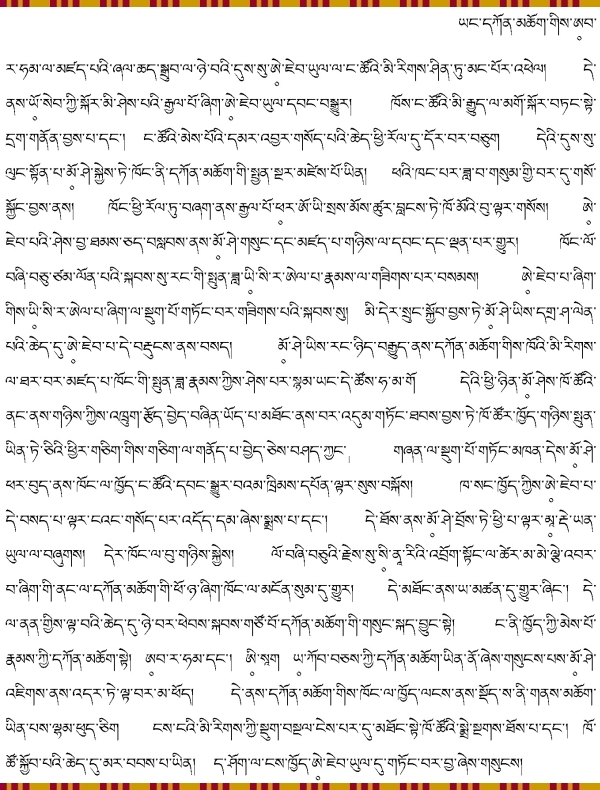 ཡང་དཀོན་མཆོག་གིས་ཨབ་
ར་ཧམ་ལ་མཛད་པའི་ཞལ་ཆད་སྒྲུབ་ལ་ཉེ་བའི་དུས་སུ་ཨེ་ཇེབ་ཡུལ་ལ་ང་ཚོའི་མི་རིགས་ཤིན་ཏུ་མང་པོར་འཕེལ། དེ་
ནས་ཡོ་སེབ་ཀྱི་སྐོར་མི་ཤེས་པའི་རྒྱལ་པོ་ཞིག་ཨེ་ཇེབ་ཡུལ་དབང་བསྒྱུར། ཁོས་ང་ཚོའི་མི་རྒྱུད་ལ་མགོ་སྐོར་བཏང་སྟེ་
དྲག་གནོན་བྱས་པ་དང་། ང་ཚོའི་མེས་པོའི་དམར་འབྱར་གསོད་པའི་ཆེད་ཕྱི་རོལ་དུ་དོར་བར་བཅུག དེའི་དུས་སུ་
ལུང་སྟོན་པ་མོ་ཤེ་སྐྱེས་ཏེ་ཁོང་ནི་དཀོན་མཆོག་གི་སྤྱན་སྔར་མཛེས་པོ་ཡིན། ཕའི་ཁང་པར་ཟླ་བ་གསུམ་གྱི་བར་དུ་གསོ་
སྐྱོང་བྱས་ནས། ཁོང་ཕྱི་རོལ་ཏུ་བཞག་ནས་རྒྱལ་པོ་ཕར་ཨོ་ཡི་སྲས་མོས་ཚུར་བླངས་ཏེ་ཁོ་མོའི་བུ་ལྟར་གསོས། ཨེ་
ཇེབ་པའི་ཤེས་བྱ་ཐམས་ཅད་བསླབས་ནས་མོ་ཤེ་གསུང་དང་མཛད་པ་གཉིས་ལ་དབང་དང་ལྡན་པར་གྱུར། ཁོང་ལོ་
བཞི་བཅུ་ཙམ་ལོན་པའི་སྐབས་སུ་རང་གི་སྤུན་ཟླ་ཡི་སི་ར་ཨེལ་པ་རྣམས་ལ་གཟིགས་པར་བསམས། ཨེ་ཇེབ་པ་ཞིག་
གིས་ཡི་སི་ར་ཨེལ་པ་ཞིག་ལ་སྡུག་པོ་གཏོང་བར་གཟིགས་པའི་སྐབས་སུ། མི་དེར་སྲུང་སྐྱོབ་བྱས་ཏེ་མོ་ཤེ་ཡིས་དགྲ་ཤ་ལེན་
པའི་ཆེད་དུ་ཨེ་ཇེབ་པ་དེ་བརྡུངས་ནས་བསད། མོ་ཤེ་ཡིས་རང་ཉིད་བརྒྱུད་ནས་དཀོན་མཆོག་གིས་ཁོའི་མི་རིགས་
ལ་ཐར་བར་མཛད་པ་ཁོང་གི་སྤུན་ཟླ་རྣམས་ཀྱིས་ཤེས་པར་སྙམ་ཡང་དེ་ཚོས་ཧ་མ་གོ དེའི་ཕྱི་ཉིན་མོ་ཤེས་ཁོ་ཚོའི་
ནང་ནས་གཉིས་ཀྱིས་འཁྲུག་རྩོད་བྱེད་བཞིན་ཡོད་པ་མཐོང་ནས་བར་འདུམ་གཏོང་ཐབས་བྱས་ཏེ་ཁོ་ཚོར་ཁྱོད་གཉིས་སྤུན་
ཡིན་ཏེ་ཅིའི་ཕྱིར་གཅིག་གིས་གཅིག་ལ་གནོད་པ་བྱེད་ཅེས་བཤད་ཀྱང་། གཞན་ལ་སྡུག་པོ་གཏོང་མཁན་དེས་མོ་ཤེ་
ཕར་བུད་ནས་ཁོང་ལ་ཁྱོད་ང་ཚོའི་དབང་སྒྱུར་བའམ་ཁྲིམས་དཔོན་ལྟར་སུས་བསྐོས། ཁ་སང་ཁྱོད་ཀྱིས་ཨེ་ཇེབ་པ་
དེ་བསད་པ་ལྟར་ངའང་གསོད་པར་འདོད་དམ་ཞེས་སྨྲས་པ་དང་། དེ་ཐོས་ནས་མོ་ཤེ་བྲོས་ཏེ་ཕྱི་པ་ལྟར་མཱ་རྡེ་ཡན་
ཡུལ་ལ་བཞུགས། དེར་ཁོང་ལ་བུ་གཉིས་སྐྱེས། ལོ་བཞི་བཅུའི་རྗེས་སུ་སི་ནཱ་རིའི་འབྲོག་སྟོང་ལ་ཚེར་མ་མེ་ལྕེ་འབར་
བ་ཞིག་གི་ནང་ལ་དཀོན་མཆོག་གི་ཕོ་ཉ་ཞིག་ཁོང་ལ་མངོན་སུམ་དུ་གྱུར། དེ་མཐོང་ནས་ཡ་མཚན་དུ་གྱུར་ཞིང་། དེ་
ལ་ནན་གྱིས་ལྟ་བའི་ཆེད་དུ་ཉེ་བར་ཕེབས་སྐབས་གཙོ་བོ་དཀོན་མཆོག་གི་གསུང་སྐད་བྱུང་སྟེ། ང་ནི་ཁྱོད་ཀྱི་མེས་པོ་
རྣམས་ཀྱི་དཀོན་མཆོག་སྟེ། ཨབ་ར་ཧམ་དང་། ཨི་སག ཡ་ཀོབ་བཅས་ཀྱི་དཀོན་མཆོག་ཡིན་ནོ་ཞེས་གསུངས་པས་མོ་ཤེ་
འཇིགས་ནས་འདར་ཏེ་ལྟ་བར་མ་ཕོད། དེ་ནས་དཀོན་མཆོག་གིས་ཁོང་ལ་ཁྱོད་ལངས་ནས་སྡོད་ས་ནི་གནས་མཆོག་
ཡིན་པས་ལྷམ་ཕུད་ཅིག ངས་ངའི་མི་རིགས་ཀྱི་སྡུག་བསྔལ་ངེས་པར་དུ་མཐོང་སྟེ་ཁོ་ཚོའི་སྨྲེ་སྔགས་ཐོས་པ་དང་། ཁོ་
ཚོ་སྐྱོབ་པའི་ཆེད་དུ་མར་བབས་པ་ཡིན། ད་ཤོག་ལ་ངས་ཁྱོད་ཨེ་ཇེབ་ཡུལ་དུ་གཏོང་བར་བྱ་ཞེས་གསུངས།